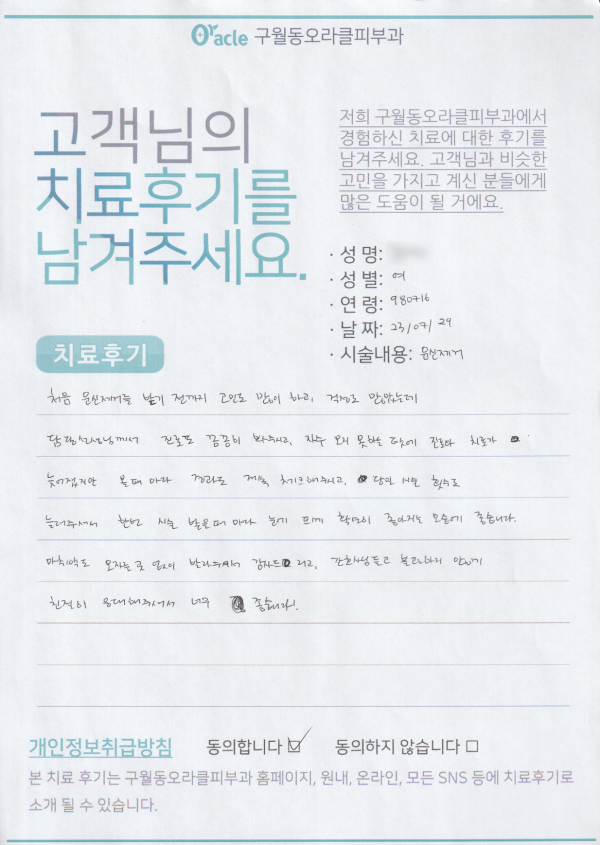 Oracle 구월동오라클피부과
고객님의
치료후기를
남겨주세요.
저희 구월동오라클피부과에서
경험하신 치료에 대한 후기를
남겨주세요. 고객님과 비슷한
고민을 가지고 계신 분들에게
많은 도움이 될 거에요.
· 성 명:
· 성 별: 여
· 연 령: 980716
· 날 짜: 23/07/29
· 시술내용: 문신제거
치료후기
처음 문신제거를 받기 전까지 고민도 많이 하고, 걱정도 많았는데
담당선생님께서 진료도 꼼꼼히 봐주시고, 자주 오지 못하는 탓에 진료와 치료가
늦어졌지만 올때 마다 경과도 계속 체크해주시고, 당일 시술 횟수도
늘려주셔서 한번 시술 받을때 마다 눈에 띄게 확연히 좋아지는 모습에 좋습니다.
마취약도 모자는 곳 없이 발라주셔서 감사드리고, 간호사님들고 불편하지 않게
친절히 응대해주셔서 너무 좋습니다!
개인정보취급방침 동의합니다 ☑ 동의하지 않습니다 □
본 치료 후기는 구월동오라클피부과 홈페이지, 원내, 온라인, 모든 SNS 등에 치료후기로
소개 될 수 있습니다.